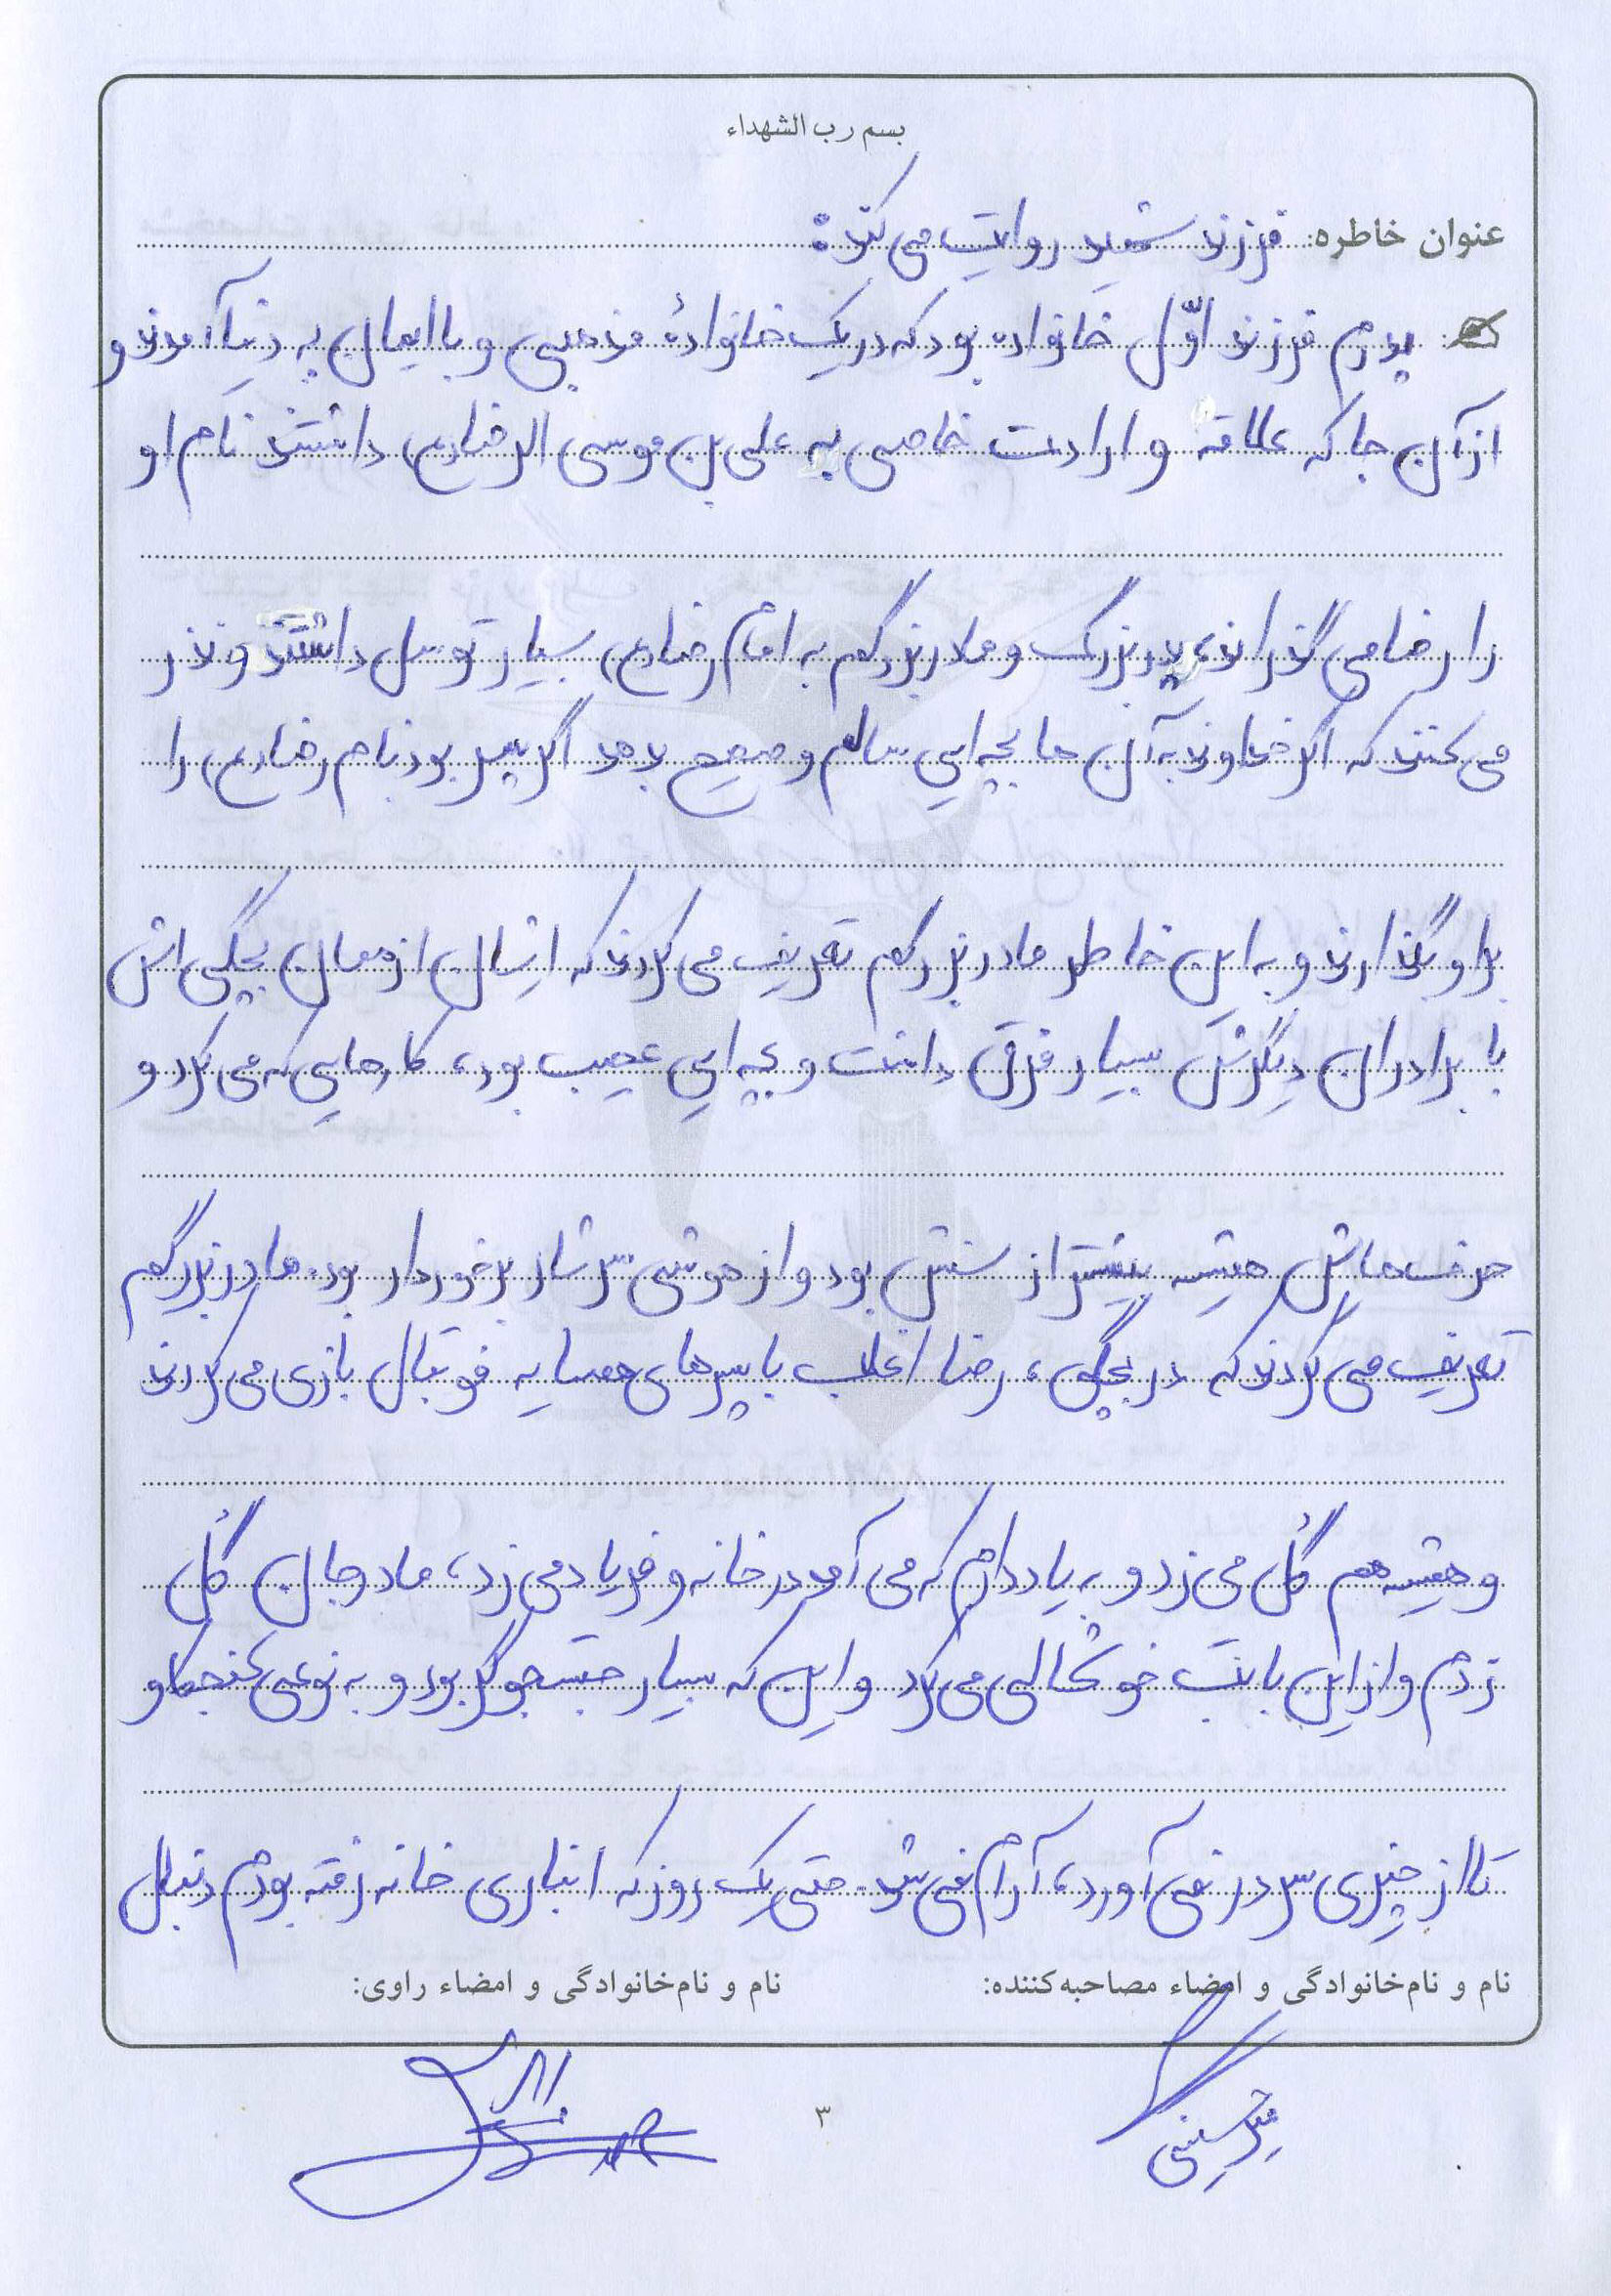 بسم رب الشهداء
عنوان خاطره: فرزند شهید روایت می کند:
پدرم فرزند اوّل خانواده بود که در یک خانوادهٔ مذهبی و با ایمان به دنیا آمدند و
از آن جا که علاقه و ارادت خاصی به علی بن موسی الرضا(ع) داشتند نام او
را رضا می گذراند، پدر بزرگ و مادر بزرگم به امام رضا(ع) بسیار توسل داشتند و نذر
می کنند که اگر خداوند به آن ها بچه ایی سالم و صحیح بدهد اگر پسر بود نام رضا(ع) را
بر او بگذارند و به این خاطر مادر بزرگم تعریف می کردند که ایشان از همان بچگی اش
با برادران دیگرش بسیار فرق داشت و بچه ایی عجیب بود، کارهایی که می کرد و
حرف هایش همیشه بیشتر از سنش بود و از هوشی سرشار برخوردار بود. مادر بزرگم
تعریف می کردند که در بچگی، رضا اغلب با پسرهای همسایه فوتبال بازی می کردند
و همیشه هم گُل می زد و به یاد دارم که می آمد در خانه و فریاد می زد، مادر جان گُل
زدم و از این بابت خوشحالی می کرد و این که بسیار جستجوگر بود و به نوعی کنجکاو
تا از چیزی سر در نمی آورد، آرام نمی شد. حتی یک روز که انباری خانه رفته بودم دنبال
نام و نام‌خانوادگی و امضاء مصاحبه‌کننده: نام و نام‌خانوادگی و امضاء راوی:
۳